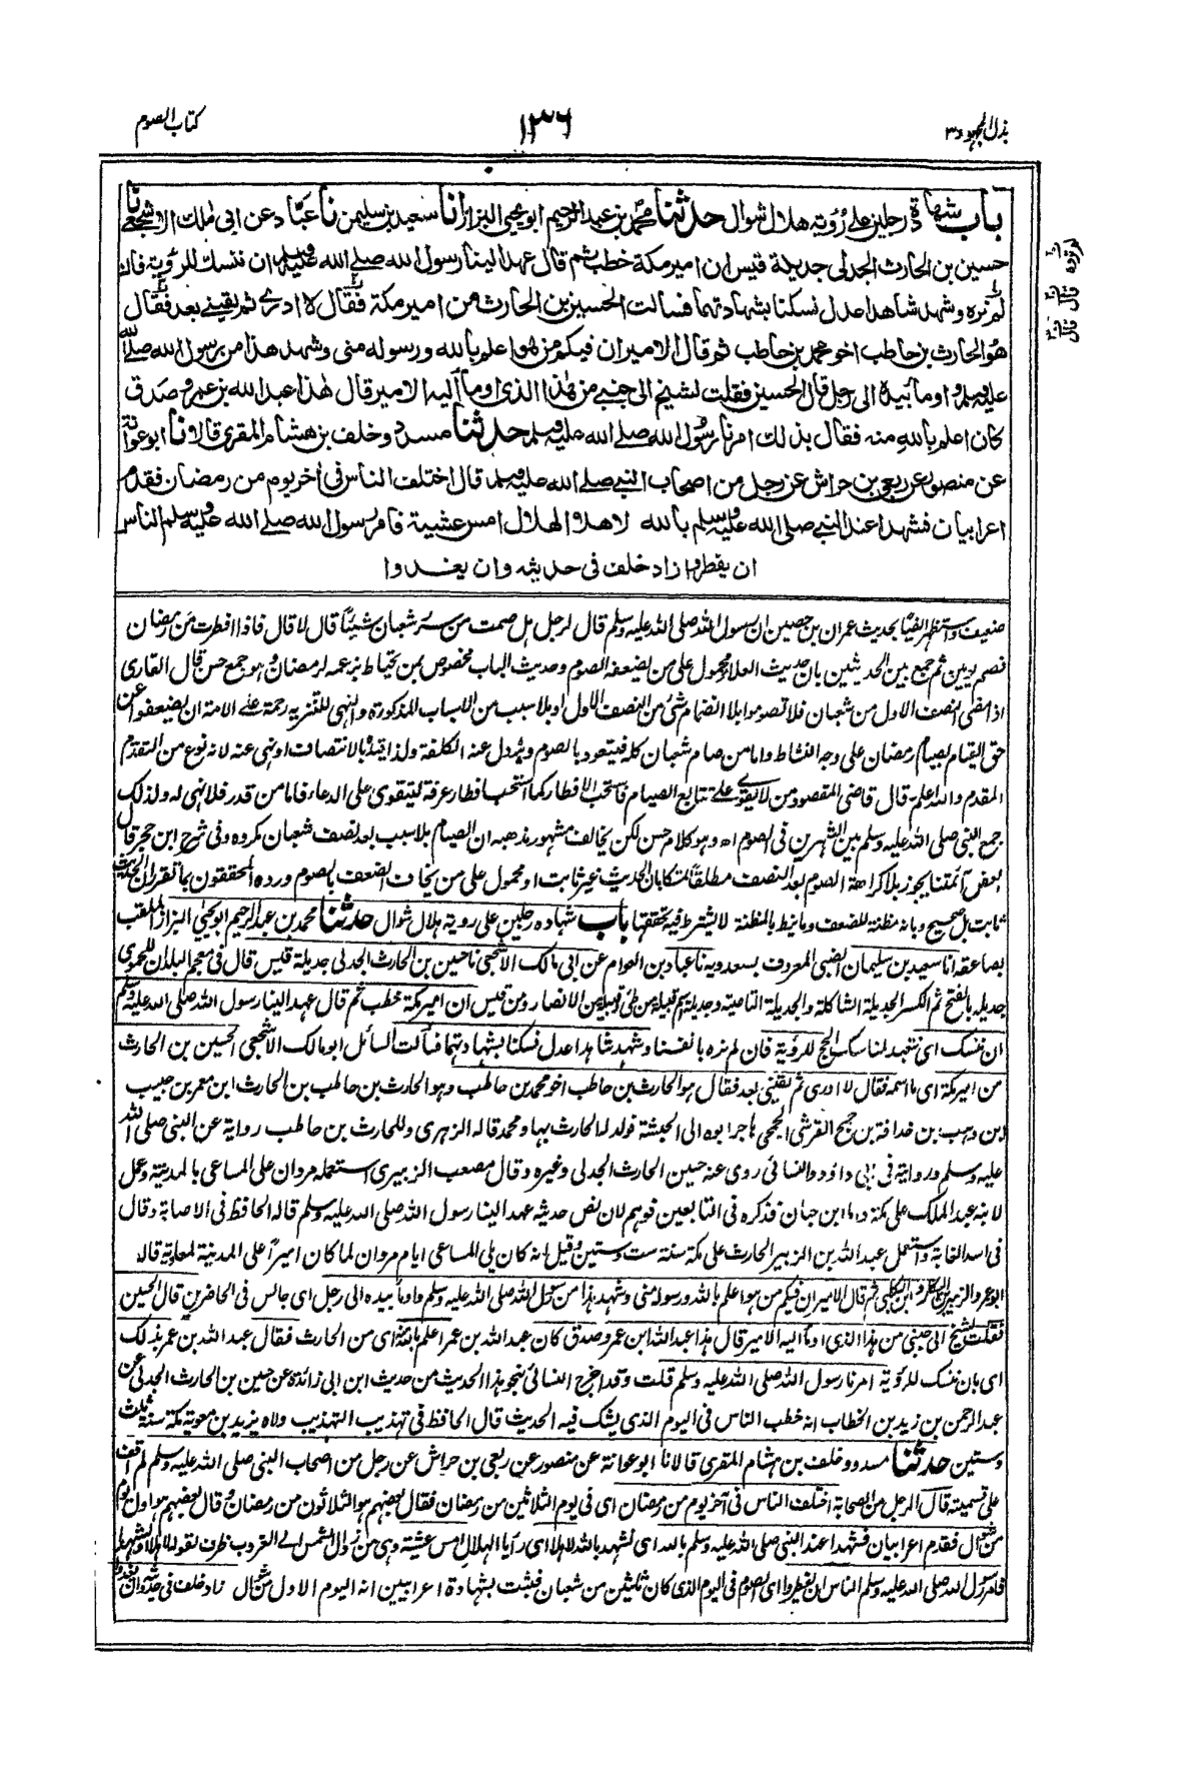 بذل المجهود ٣
١٣٦
كتاب الصوم
باب شهادة رجلين على رؤية هلال شوال حدثنا محمد بن عبد الرحيم ابو يحيى البزاز انا سعيد بن سليمن نا عباد عن ابى مالك الاشجعى نا
حسين بن الحارث الجدلى جديلة قيس ان امير مكة خطب ثم قال عهد الينا رسول الله صلى الله عليه وسلم ان ننسك للرؤية فان
لم نره وشهد شاهدا عدل نسكنا بشهادتهما فسالت الحسين بن الحارث من امير مكة فقال لا ادرى ثم لقينى بعد فقال
هو الحارث بن حاطب اخو محمد بن حاطب ثم قال الامير ان فيكم من هو اعلم بالله ورسوله منى وشهد هذا من رسول الله صلى الله
عليه وسلم واومأ بيده الى رجل قال الحسين فقلت لشيخ الى جنبى من هذا الذى اومأ اليه الامير قال هذا عبد الله بن عمر وصدق
كان اعلم بالله منه فقال بذلك امرنا رسول الله صلى الله عليه وسلم حدثنا مسدد وخلف بن هشام المقرى قالا نا ابو عوانة
عن منصور عن ربعى بن حراش عن رجل من اصحاب النبى صلى الله عليه وسلم قال اختلف الناس فى اخر يوم من رمضان فقدم
اعرابيان فشهدا عند النبى صلى الله عليه وسلم بالله لاهلا الهلال امس عشية فامر رسول الله صلى الله عليه وسلم الناس
ان يفطروا زاد خلف فى حديثه وان يغدوا
ضعيف واستظهر ايضا بحديث عمران بن حصين ان رسول الله صلى الله عليه وسلم قال لرجل هل صمت من سرر شعبان شيئا قال لا قال فاذا افطرت من رمضان
فصم يومين ثم جمع بين الحديثين بان حديث العلاء محمول على من يضعفه الصوم وحديث الباب مخصوص بمن يحتاط بزعمه لرمضان وهو جمع حسن قال القارى
اذا مضى النصف الاول من شعبان فلا تصوموا بلا انضمام شئ من النصف الاول او بلا سبب من الاسباب المذكورة والنهى للتنزيه رحمة على الامة ان يضعفوا عن
حق القيام بصيام رمضان على وجه النشاط واما من صام شعبان كله فيتعود بالصوم ويزول عنه الكلفة ولذا قيده بالانتصاف او نهى عنه لانه نوع من التقدم
المقدم والله اعلم قال قاضى المقصود من لا يقوى على تتابع الصيام فاستحب الافطار كما استحب افطار عرفة ليتقوى على الدعاء فاما من قدر فلا نهى له ولذلك
جمع النبى صلى الله عليه وسلم بين الشهرين فى الصوم اه وهو كلام حسن لكن يخالف مشهور مذهبه ان الصيام بلا سبب بعد نصف شعبان مكروه وفى شرح ابن حجر قال
بعض ائمتنا يجوز بلا كراهة الصوم بعد النصف مطلقا تمسكا بان الحديث غير ثابت او محمول على من يخاف الضعف بالصوم ورده المحققون بما تقرر ان الحديث
ثابت بل صحيح وبانه مظنة للضعف وما نيط بالمظنة لا يشترط فيه تحققها باب شهادة رجلين على روية هلال شوال حدثنا محمد بن عبد الرحيم ابو يحيى البزاز الملقب
بصاعقة انا سعيد بن سليمان الضبى المعروف بسعدويه نا عباد بن العوام عن ابى مالك الاشجعى نا حسين بن الحارث الجدلى جديلة قيس قال فى معجم البلدان للحموى
جديلة بالفتح ثم الكسر الجديلة الشاكلة والجديلة الناحية وجديلة اسم قبيلة من طئ وقبيلة من الانصار ومن قيس ان امير مكة خطب ثم قال عهد الينا رسول الله صلى الله عليه وسلم
ان ننسك اى نتعبد لمناسك الحج للرؤية فان لم نره بانفسنا وشهد شاهدا عدل نسكنا بشهادتهما فسالت السائل ابو مالك الاشجعى الحسين بن الحارث
من امير مكة اى ما اسمه فقال لا ادرى ثم لقينى بعد فقال هو الحارث بن حاطب اخو محمد بن حاطب وهو الحارث بن حاطب بن الحارث ابن معمر بن حبيب
ابن وهب بن حذافة بن جمح القرشى الجمحى هاجر ابوه الى الحبشة فولد له الحارث بها ومحمد قاله الزهرى وللحارث بن حاطب رواية عن النبى صلى الله
عليه وسلم وروايته فى ابى داؤد والنسائى روى عنه حسين الحارث الجدلى وغيره وقال مصعب الزبيرى استعمله مروان على المساعى بالمدينة وعمل
لابنه عبد الملك على مكة واما ابن حبان فذكره فى التابعين فوهم لان نص حديثه عهد الينا رسول الله صلى الله عليه وسلم قاله الحافظ فى الاصابة وقال
فى اسد الغابة واستعمل عبد الله بن الزبير الحارث على مكة سنة ست وستين وقيل انه كان يلى المساعى ايام مروان لما كان اميرا على المدينة لمعاوية قاله
ابو عمر والزبير بن بكار وابن الكلبى ثم قال الامير ان فيكم من هو اعلم بالله ورسوله منى وشهد هذا من رسول الله صلى الله عليه وسلم واومأ بيده الى رجل اى جالس فى الحاضرين قال الحسين
فقلت لشيخ الى جنبى من هذا الذى اومأ اليه الامير قال هذا عبد الله ابن عمر وصدق كان عبد الله بن عمر اعلم بالله اى من الحارث فقال عبد الله بن عمر بذلك
اى بان ننسك للرؤية امرنا رسول الله صلى الله عليه وسلم قلت وقد اخرج النسائى نحو هذا الحديث من حديث ابن ابى زائدة عن حسين بن الحارث الجدلى عن
عبد الرحمن بن زيد بن الخطاب انه خطب الناس فى اليوم الذى يشك فيه الحديث قال الحافظ فى تهذيب التهذيب ولاه يزيد بن معوية مكة سنة ثلث
وستين حدثنا مسدد وخلف بن هشام المقرى قالا نا ابو عوانة عن منصور عن ربعى بن حراش عن رجل من اصحاب النبى صلى الله عليه وسلم لم اقف
على تسميته قال الرجل من الصحابة اختلف الناس فى آخر يوم من رمضان اى فى يوم الثلاثين من رمضان فقال بعضهم هو الثلاثون من رمضان وقال بعضهم هو اول يوم
من شوال فقدم اعرابيان فشهدا عند النبى صلى الله عليه وسلم بالله اى نشهد بالله لاهلا اى رايا الهلال امس عشية وهى من زوال الشمس الى الغروب ظرف لقوله لاهلا
فامر رسول الله صلى الله عليه وسلم الناس ان يفطروا اى الصوم فى اليوم الذى كان ثلثين من شعبان فثبت بشهادة اعرابيين انه اليوم الاول من شوال زاد خلف فى حديثه وان يغدوا